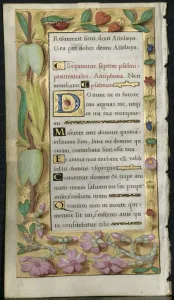 Resurrexit sicut dixit Alleluya.
Ora pro nobis deum Alleluya.
Sequuntur septem psalmi
penitentiales. Antiphona. Ne
reminiscaris. Psalmus.
Domine ne in furore
tuo arguas me, neque
in ira tua corripias
Miserere mei domine quoniam
infirmus sum, sana me domine
quoniam conturbata sunt ossa mea
Et anima mea turbata est valde
sed tu domine
Convertere domine et eripe
animam meam salvum me fac
propter misericordiam tuam
Quoniam non est in morte qui
memor sit tui, in inferno autem
quis confitebitur tibi